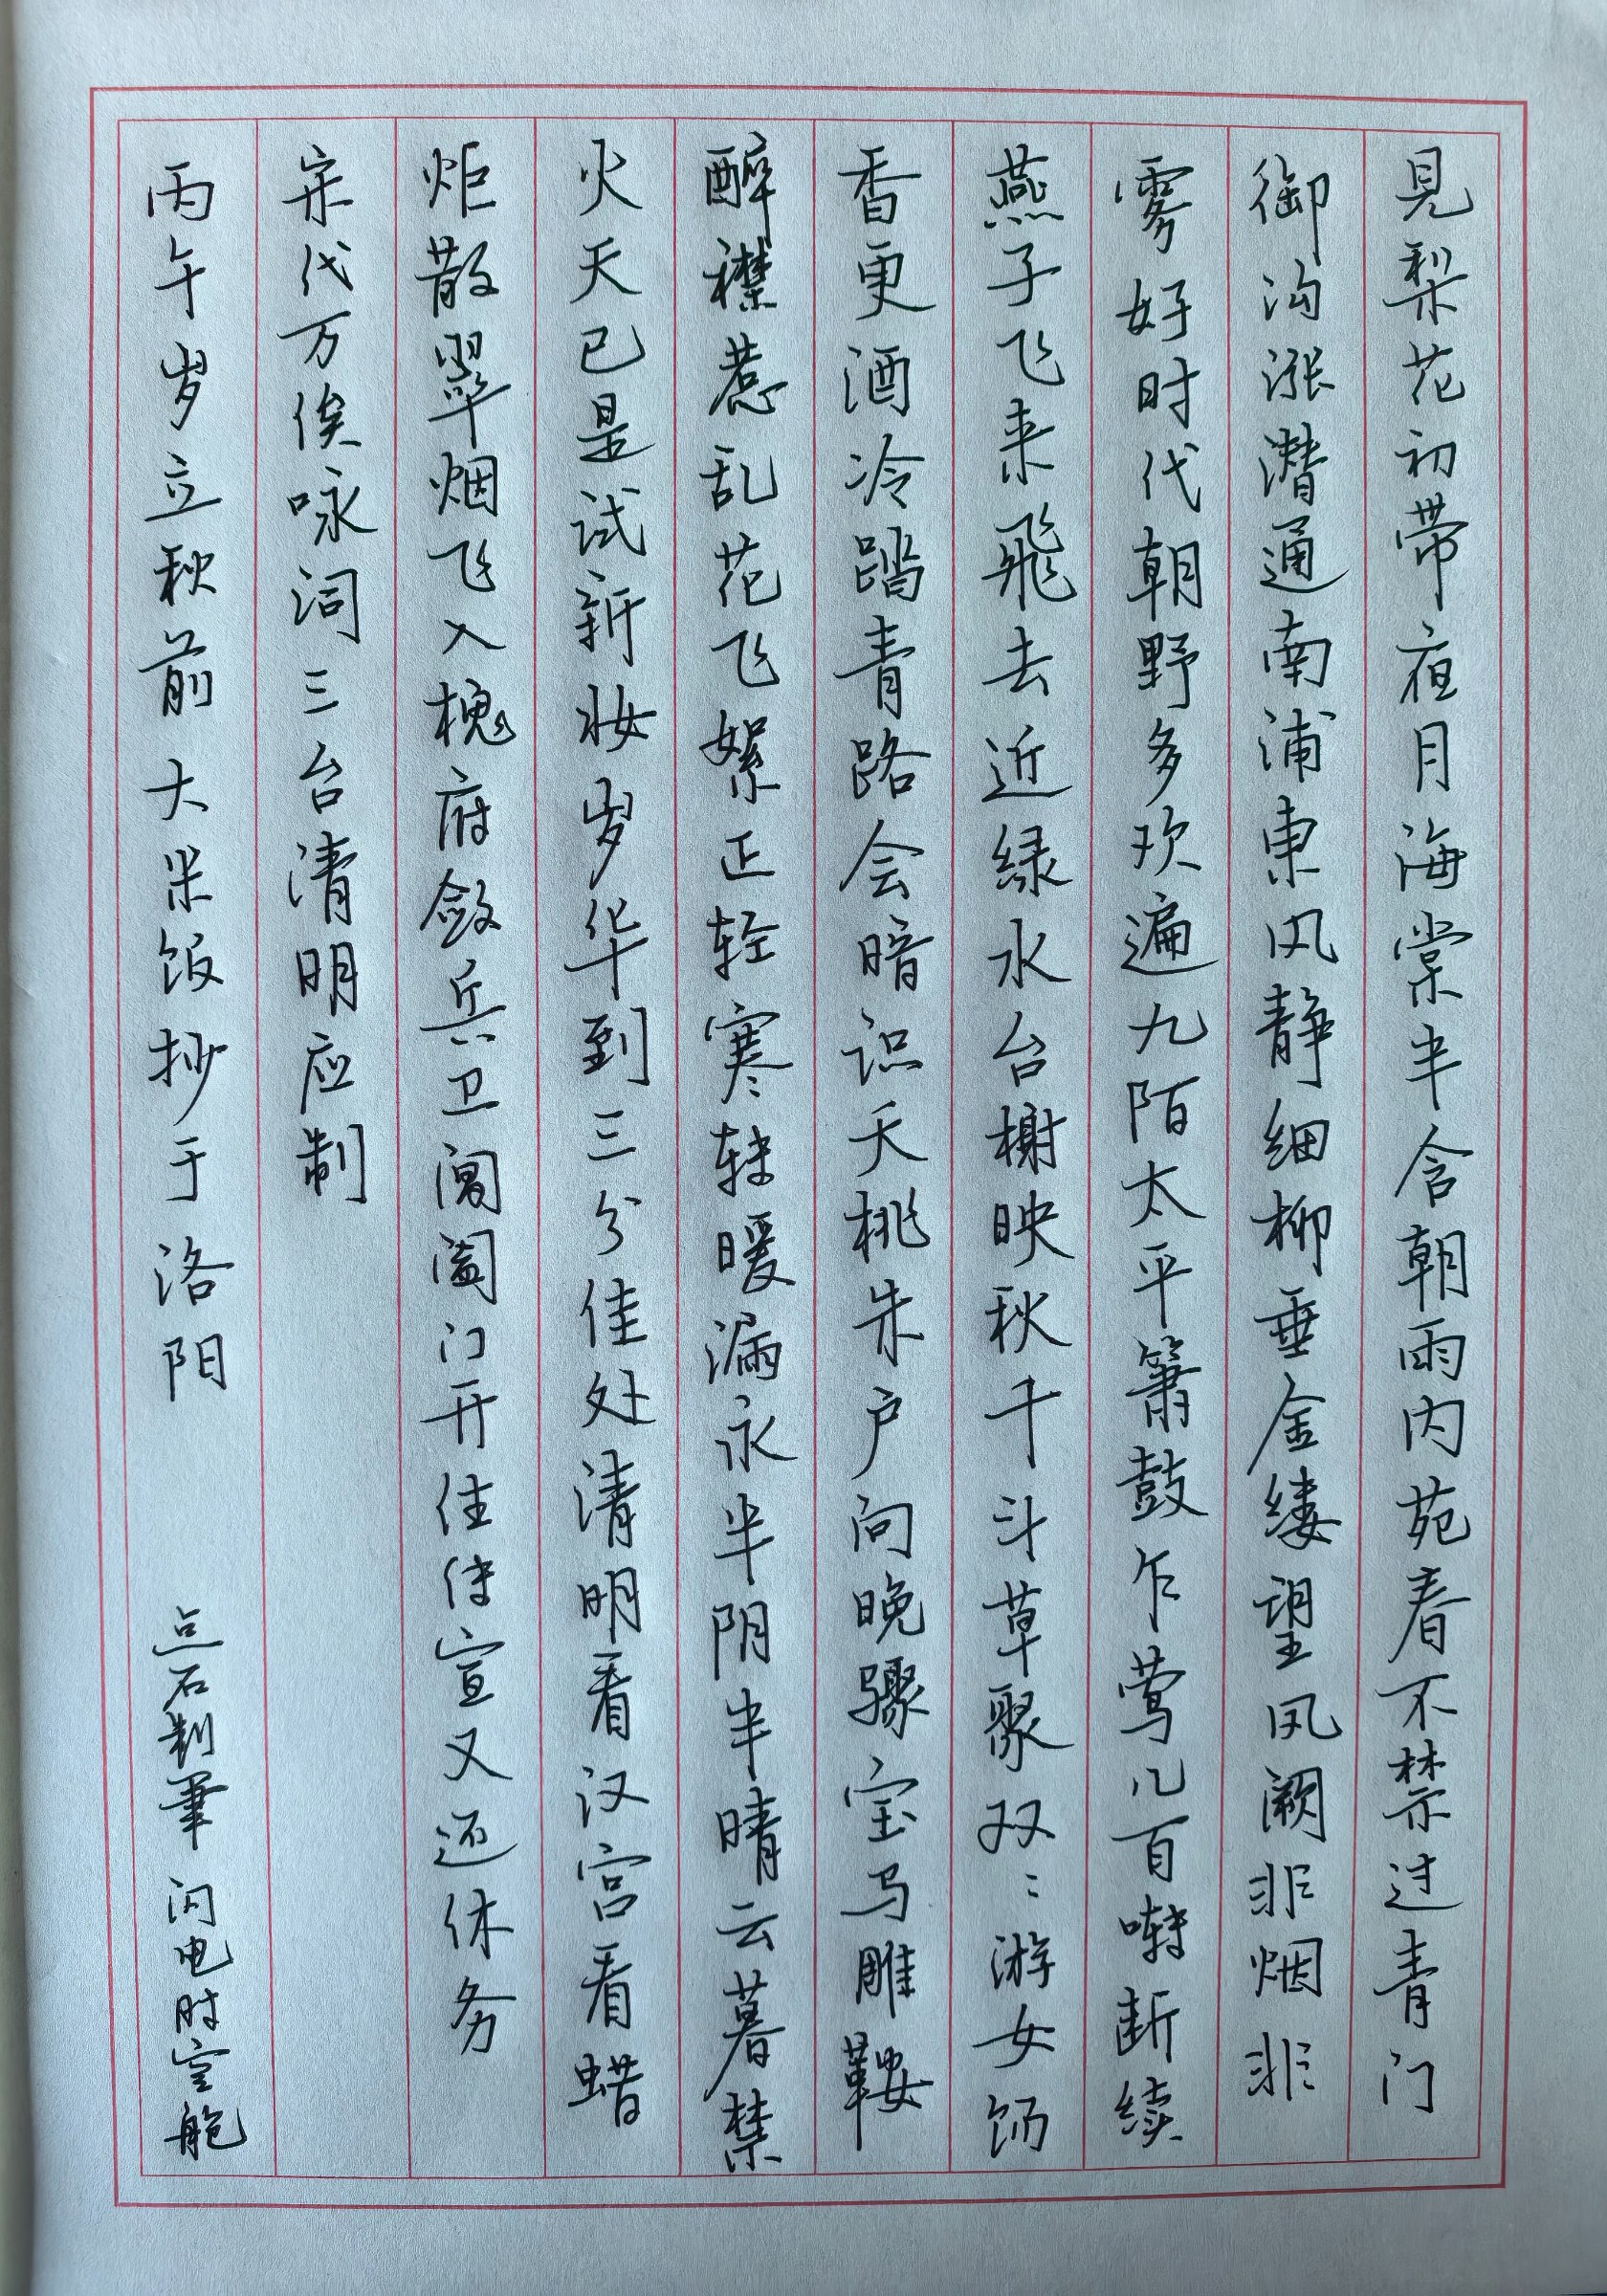 見梨花初带夜月海棠半含朝雨内苑春不禁过青门
御沟涨潜通南浦東风静细柳垂金缕望凤阙非烟非
雾好时代朝野多欢遍九陌太平箫鼓乍莺儿百啭断续
燕子飞来飛去近绿水台榭映秋千斗草聚双〻游女饧
香更酒冷踏青路会暗识夭桃朱户向晚骤宝马雕鞍
醉襟惹乱花飞絮正轻寒轻暖漏永半阴半晴云暮禁
火天已是试新妆岁华到三分佳处清明看汉宫看蜡
炬散翠烟飞入槐府敛兵卫阊阖门开住传宣又还休务
宋代万俟咏词三台清明应制
丙午岁立秋前大米饭抄于洛阳 点石制筆闪电时空舱